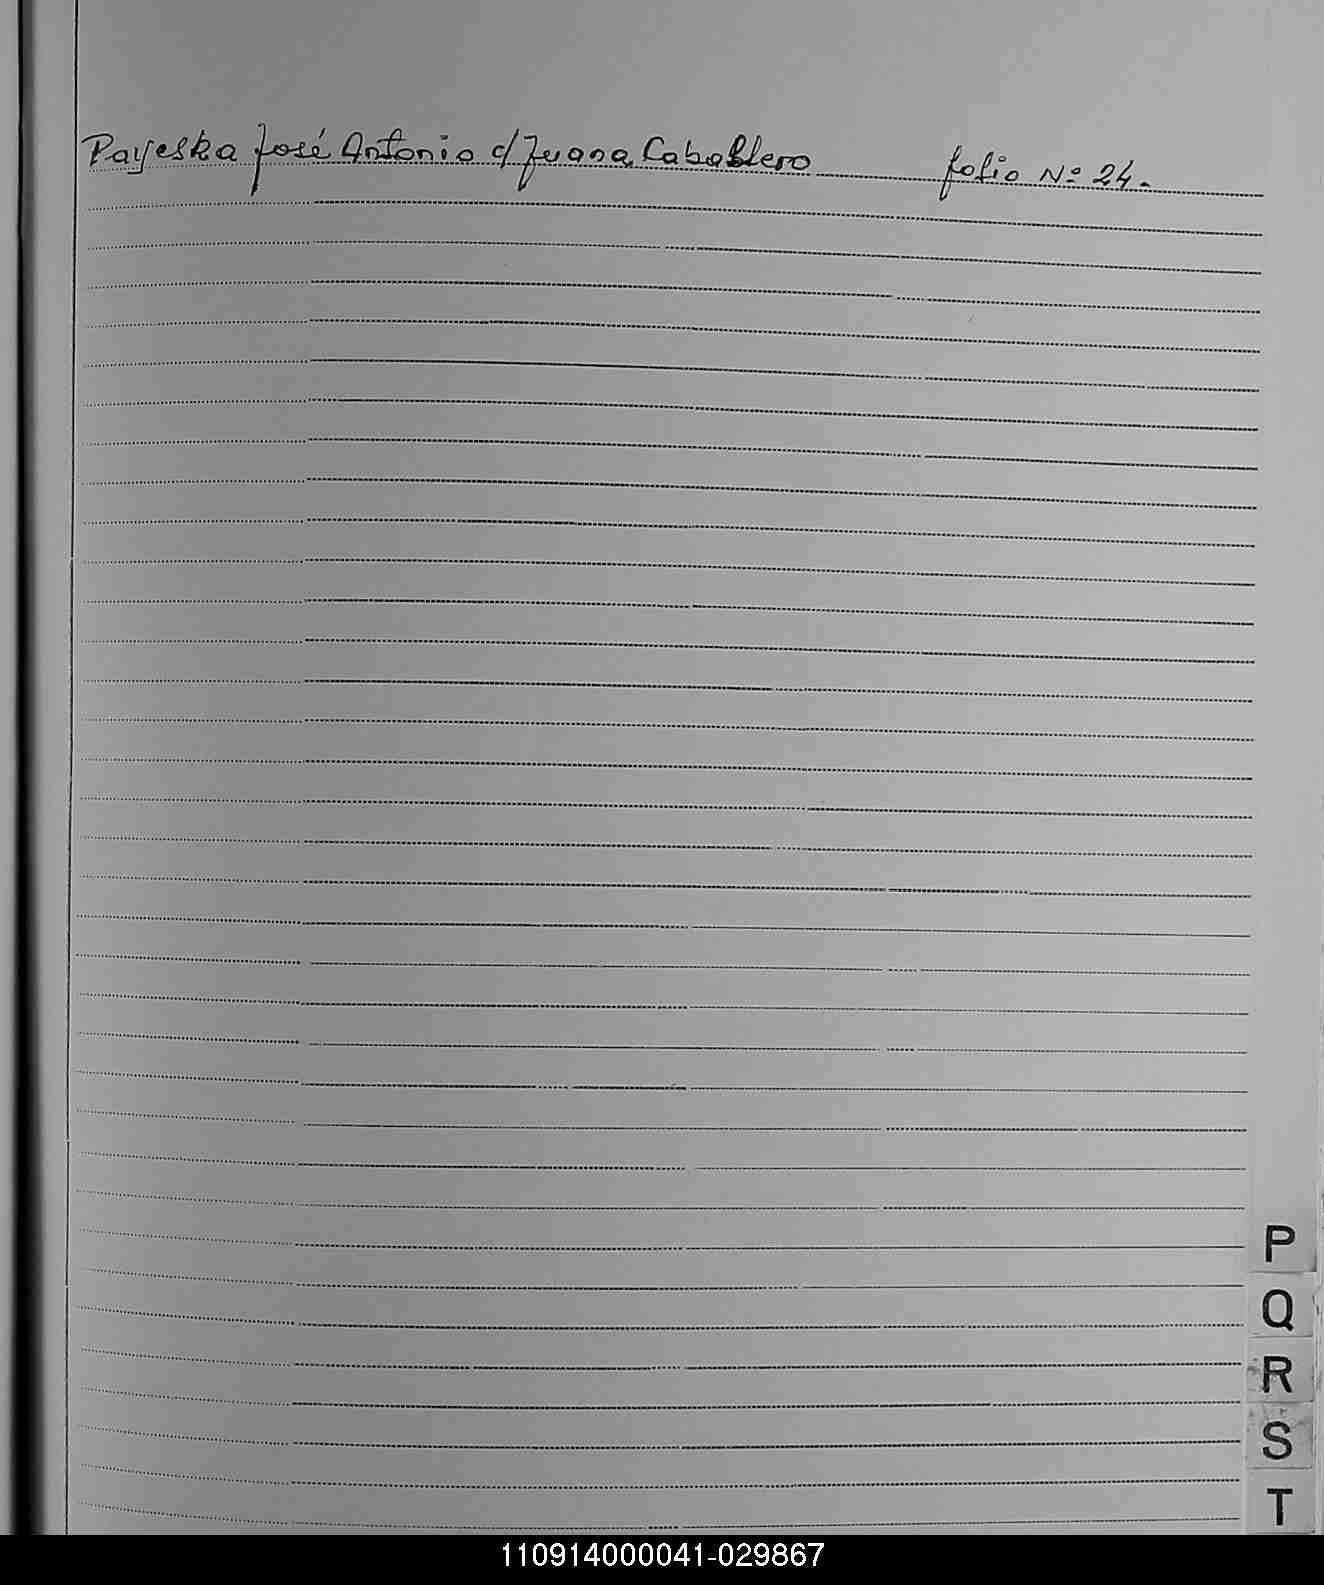 Payeska José Antonio c/ Juana Caballero folio Nº 24.
P
Q
R
S
T
110914000041-029867